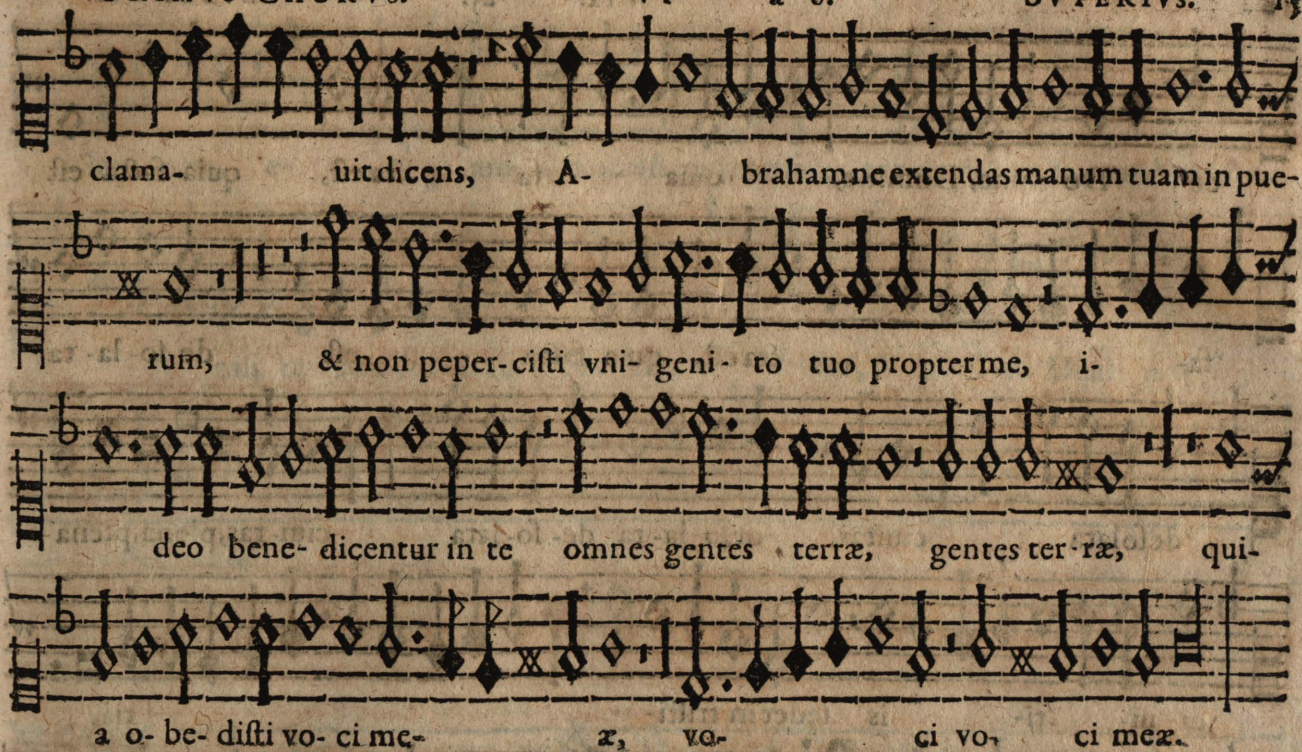 CHORVS. SVPERIVS.
clama- uit dicens, A- braham ne extendas manum tuam in pue-
rum, & non peper- cisti vni- geni- to tuo propter me, i-
deo bene- dicentur in te omnes gentes terræ, gentes ter- ræ, qui-
a o- be- disti vo- ci me- æ, vo- ci vo- ci meæ.